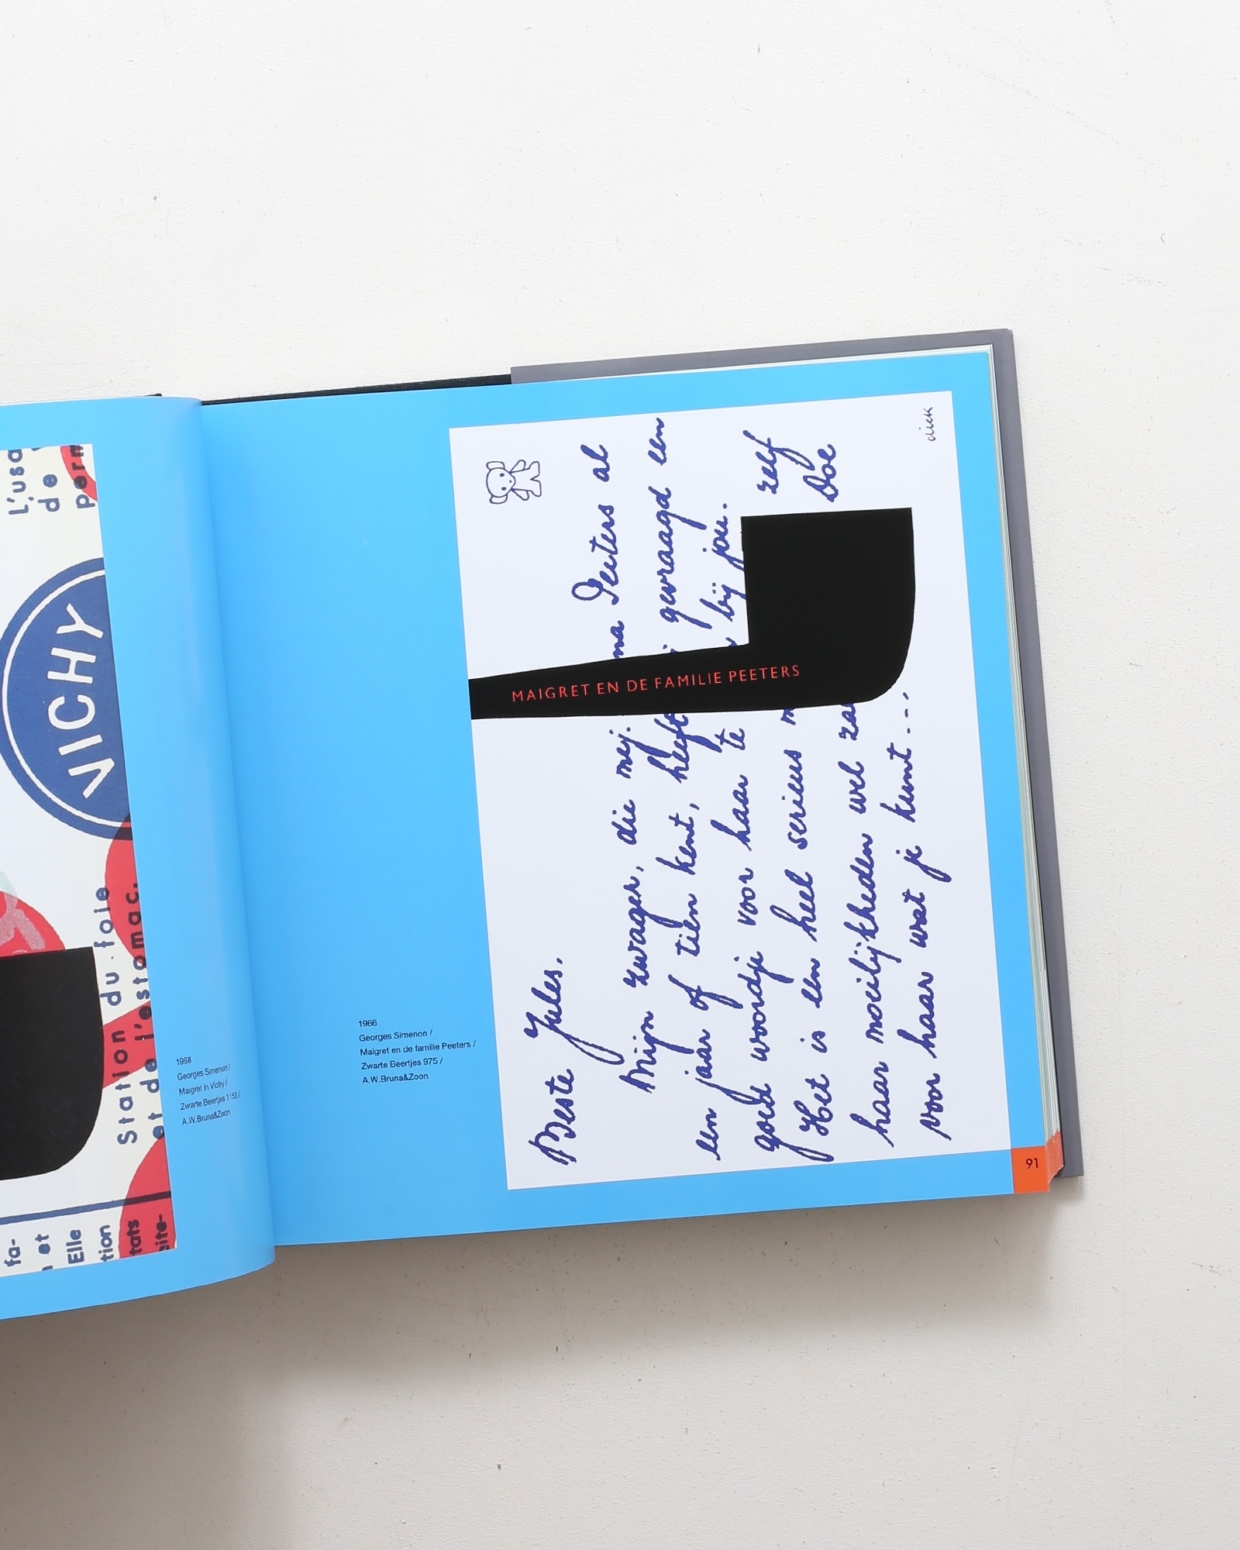 L'usa
de
perm
VICHY
Station du foie
et de l'estomac.
fa-
et
Elle
tion
tats
gite-
1968
Georges Simenon /
Maigret in Vichy /
Zwarte Beertjes 1153 /
A.W.Bruna&Zoon
1966
Georges Simenon /
Maigret en de familie Peeters /
Zwarte Beertjes 975 /
A.W.Bruna&Zoon
Beste Jules,
Mijn zwager, die mej. na Peeters al
een jaar of tien kent, heeft gevraagd een
goed woordje voor haar te bij jou.
Het is een heel serieus m zelf
haar moeilijkheden wel za Doe
voor haar wat je kunt...
MAIGRET EN DE FAMILIE PEETERS
dick
91